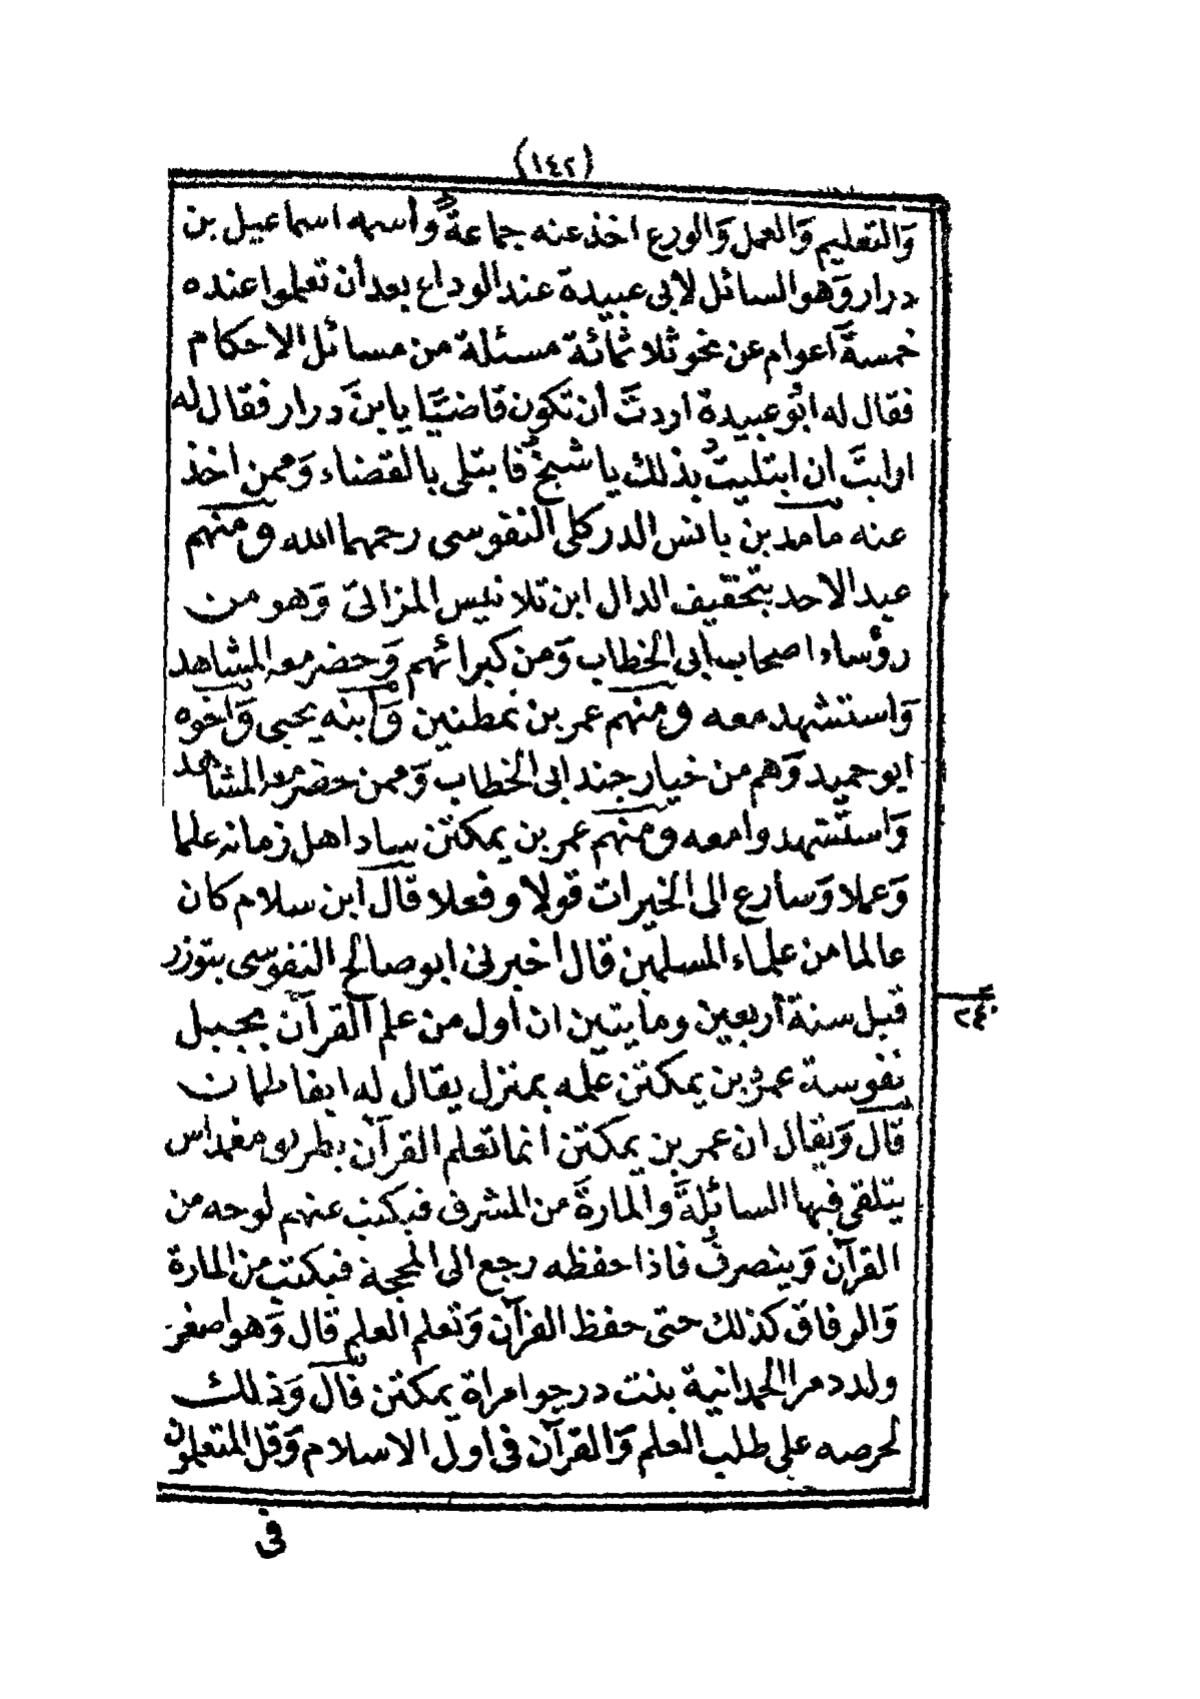 (١٤٢)
وَالتعليم وَالعمل وَالورع اخذ عنه جماعة وأسمه اسماعيل بن
درار وَهو السائل لأبى عبيدة عند الوداع بعد أن تعلموا عنده
خمسةَ أعوام عن نحو ثلاثمائة مسئلة من مسائل الاحكام
فقال له ابُو عبيدة اردتَ أن تكون قاضيًا يا ابنَ درار فقال له
ارايتَ ان ابتليتُ بذلك يا شيخُ فابتلى بالقضاء وَممن اخذ
عنه مامد بن يانس الدركلى النفوسى رحمهما الله ومنهم
عبد الاحد بتخفيف الدال ابن تلا نيس المزاتىّ وَهو من
رؤساء اصحاب أبى الخطاب وَمن كبرائهم وَحضر معه المشاهد
وَاستشهد معه ومنهم عمر بن نمطنين وَأبنه يحيى وَاخوه
ابو حميد وَهم من خيار جند ابى الخطاب وَممن حضر معه المشاهد
وَاستشهدوا معه ومنهم عمر بن يمكتن ساد اهل زمانه علما
وَعملا وَسارع الى الخيرات قولا وفعلا قال ابن سلام كان
عالما من علماء المسلمين قال اخبرنى ابو صالح النفوسى بتوزر
قبل سنة أربعين ومايتين ان أول من علم القرآن بجبل
٢٤٠
نفوسة عمرُ بن يمكتن علمه بمنزل يقال له ايفاطمان
قال وَيقال ان عمر بن يمكتن انما تعلم القرآن بطريق مغمداس
يتلقى فيها السائلةَ والمارةَ من المشرق فيكتب عنهم لوحه من
القرآن وَينصرفُ فاذا حفظه رجع الى المحجة فيكتب من المارة
وَالرفاق كذلك حتى حفظ القرآن وَتعلم العلم قال وَهو اصغر
ولد دمر الحمدانية بنت درجو امراة يمكتن قال وَذلك
لحرصه على طلب العلم وَالقرآن فى اول الاسلام وَقل المتعلمون
فى